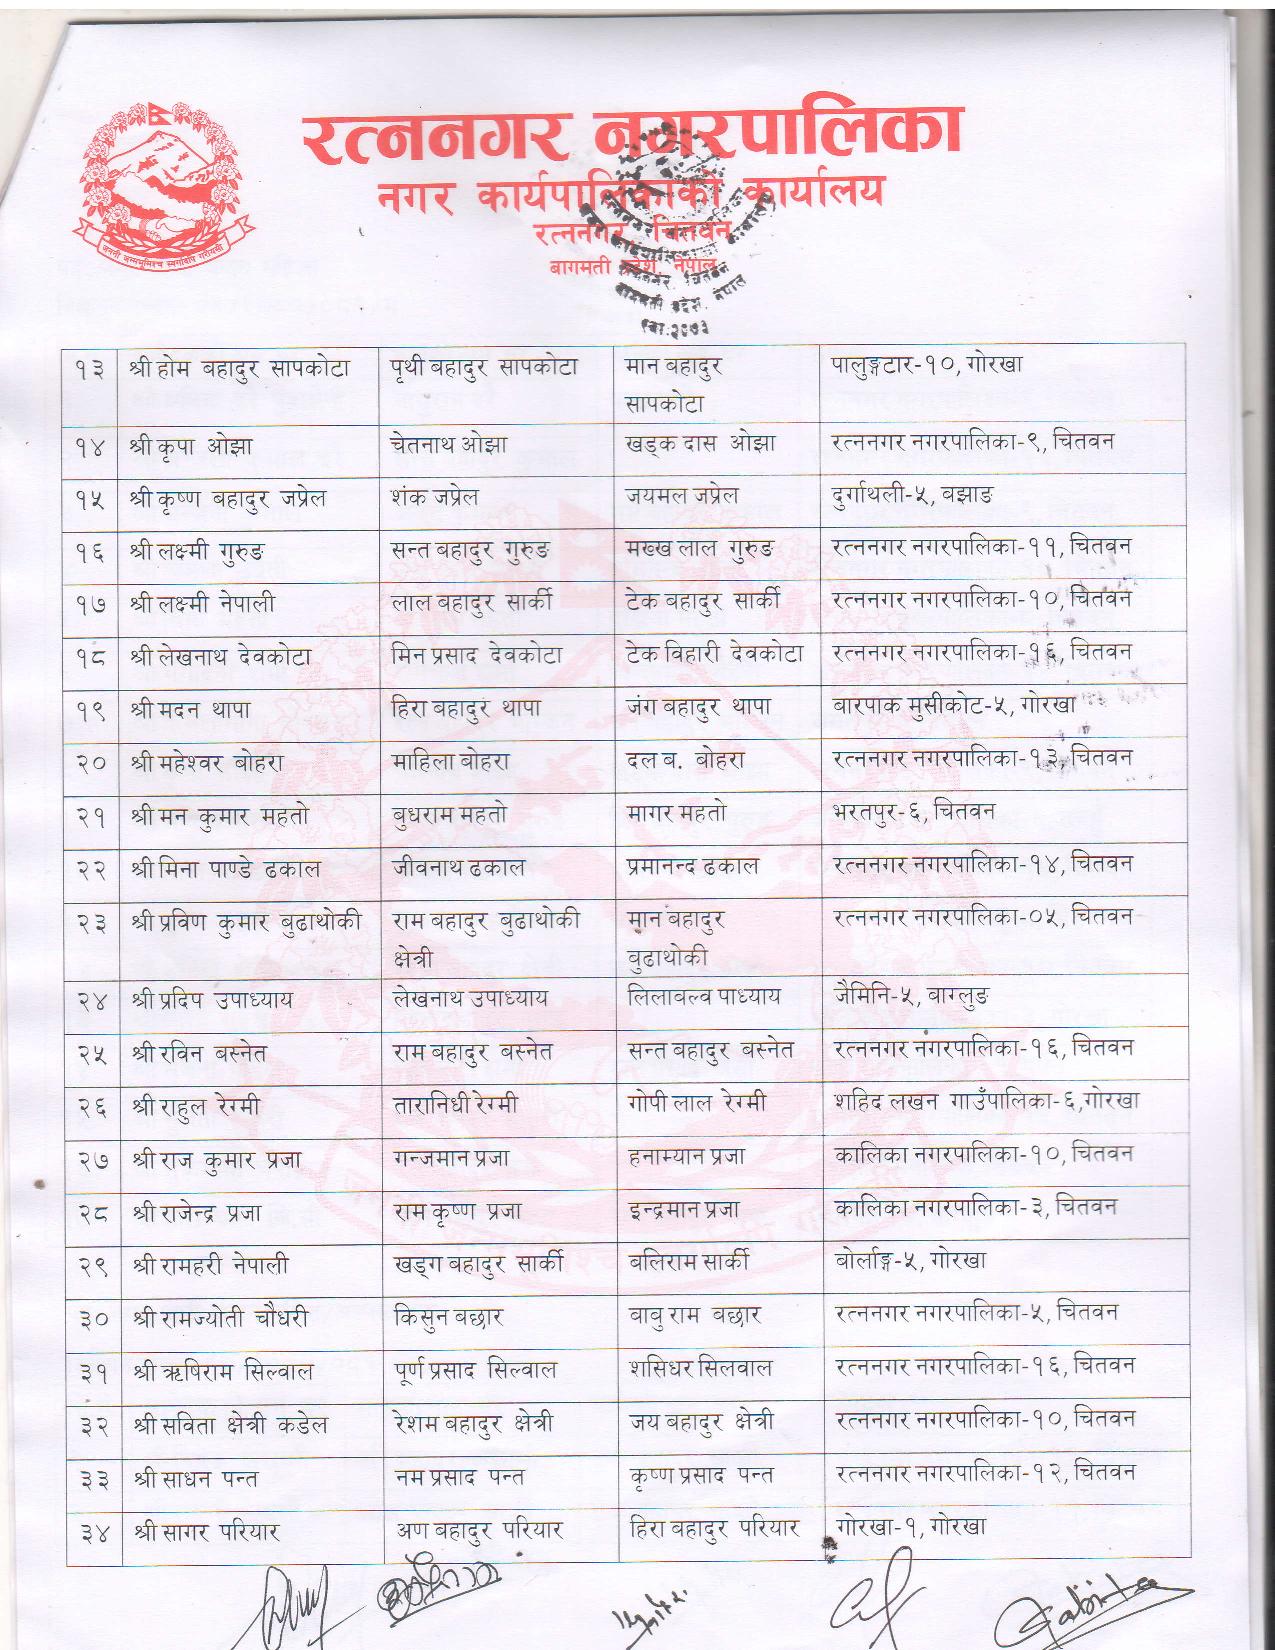 रत्ननगर नगरपालिका
नगर कार्यपालिकाको कार्यालय
रत्ननगर, चितवन
बागमती प्रदेश, नेपाल
जननी जन्मभूमिश्च स्वर्गादपि गरीयसी
नगर कार्यपालिकाको कार्यालय
रत्ननगर, चितवन
बागमती प्रदेश, नेपाल
स्था.२०७३
१३ श्री होम बहादुर सापकोटा पृथी बहादुर सापकोटा मान बहादुर पालुङ्गटार-१०, गोरखा
सापकोटा
१४ श्री कृपा ओझा चेतनाथ ओझा खड्क दास ओझा रत्ननगर नगरपालिका-९, चितवन
१५ श्री कृष्ण बहादुर जप्रेल शंक जप्रेल जयमल जप्रेल दुर्गाथली-५, बझाङ
१६ श्री लक्ष्मी गुरुङ सन्त बहादुर गुरुङ मख्ख लाल गुरुङ रत्ननगर नगरपालिका-११, चितवन
१७ श्री लक्ष्मी नेपाली लाल बहादुर सार्की टेक बहादुर सार्की रत्ननगर नगरपालिका-१०, चितवन
१८ श्री लेखनाथ देवकोटा मिन प्रसाद देवकोटा टेक विहारी देवकोटा रत्ननगर नगरपालिका-१६, चितवन
१९ श्री मदन थापा हिरा बहादुर थापा जंग बहादुर थापा बारपाक मुसीकोट-५, गोरखा
२० श्री महेश्वर बोहरा माहिला बोहरा दल ब. बोहरा रत्ननगर नगरपालिका-१३, चितवन
२१ श्री मन कुमार महतो बुधराम महतो मागर महतो भरतपुर-६, चितवन
२२ श्री मिना पाण्डे ढकाल जीवनाथ ढकाल प्रमानन्द ढकाल रत्ननगर नगरपालिका-१४, चितवन
२३ श्री प्रविण कुमार बुढाथोकी राम बहादुर बुढाथोकी मान बहादुर रत्ननगर नगरपालिका-०५, चितवन
क्षेत्री बुढाथोकी
२४ श्री प्रदिप उपाध्याय लेखनाथ उपाध्याय लिलावल्व पाध्याय जैमिनि-५, बाग्लुङ
२५ श्री रविन बस्नेत राम बहादुर बस्नेत सन्त बहादुर बस्नेत रत्ननगर नगरपालिका-१६, चितवन
२६ श्री राहुल रेग्मी तारानिधी रेग्मी गोपी लाल रेग्मी शहिद लखन गाउँपालिका-६,गोरखा
२७ श्री राज कुमार प्रजा गन्जमान प्रजा हनाम्यान प्रजा कालिका नगरपालिका-१०, चितवन
२८ श्री राजेन्द्र प्रजा राम कृष्ण प्रजा इन्द्रमान प्रजा कालिका नगरपालिका-३, चितवन
२९ श्री रामहरी नेपाली खड्ग बहादुर सार्की बलिराम सार्की बोर्लाङ्ग-५, गोरखा
३० श्री रामज्योती चौधरी किसुन बछार बाबु राम बछार रत्ननगर नगरपालिका-५, चितवन
३१ श्री ऋषिराम सिल्वाल पूर्ण प्रसाद सिल्वाल शसिधर सिलवाल रत्ननगर नगरपालिका-१६, चितवन
३२ श्री सविता क्षेत्री कडेल रेशम बहादुर क्षेत्री जय बहादुर क्षेत्री रत्ननगर नगरपालिका-१०, चितवन
३३ श्री साधन पन्त नम प्रसाद पन्त कृष्ण प्रसाद पन्त रत्ननगर नगरपालिका-१२, चितवन
३४ श्री सागर परियार अण बहादुर परियार हिरा बहादुर परियार गोरखा-१, गोरखा